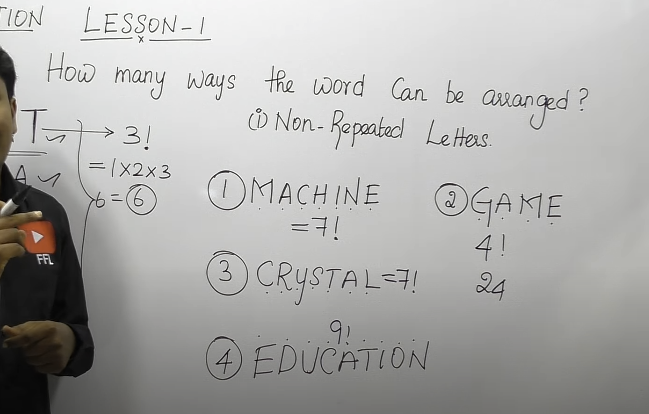 TION LESSON-1
x
How many ways the word Can be arranged?
(i) Non-Repeated Letters.
T → 3!
= 1×2×3
A 6 = 6
① MACHINE
= 7!
② GAME
4!
24
③ CRYSTAL = 7!
9!
④ EDUCATION
FFL